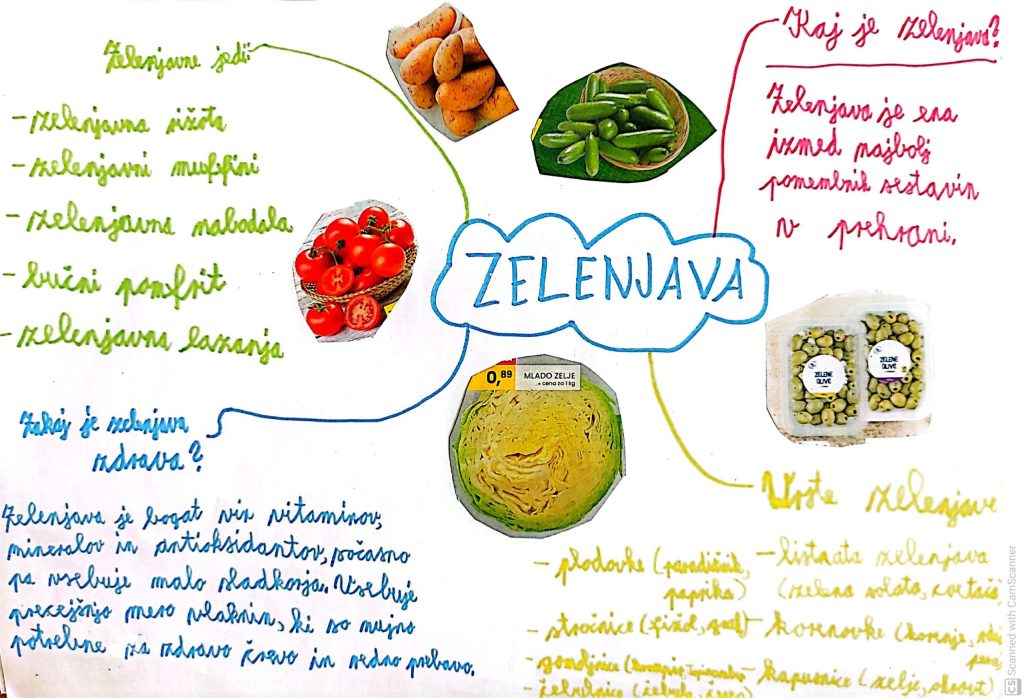 ZELENJAVA
Kaj je zelenjava?
Zelenjava je ena
izmed najbolj
pomembnih sestavin
v prehrani.
Zelenjavne jedi:
- zelenjavna rižota
- zelenjavni muffini
- zelenjavna nabodala
- bučni pomfrit
- zelenjavna lazanja
Zakaj je zelenjava
zdrava?
Zelenjava je bogat vir vitaminov,
mineralov in antioksidantov, počasno
pa vsebuje malo sladkorja. Vsebuje
precejšnjo mero vlaknin, ki so nujno
potrebne za zdravo črevo in redno prebavo.
0,89 MLADO ZELJE
cena za 1 kg
ZELENE
OLIVE
ZELENE
OLIVE
Vrste zelenjave
- plodovke (paradižnik,
paprika)
- stročnice (fižol, grah)
- gomoljnice (krompir,
- čebulnice (čebula,
- listnata zelenjava
(zelena solata,
- korenovke (korenje,
- kapusnice (zelje, ohrovt)
CS Scanned with CamScanner